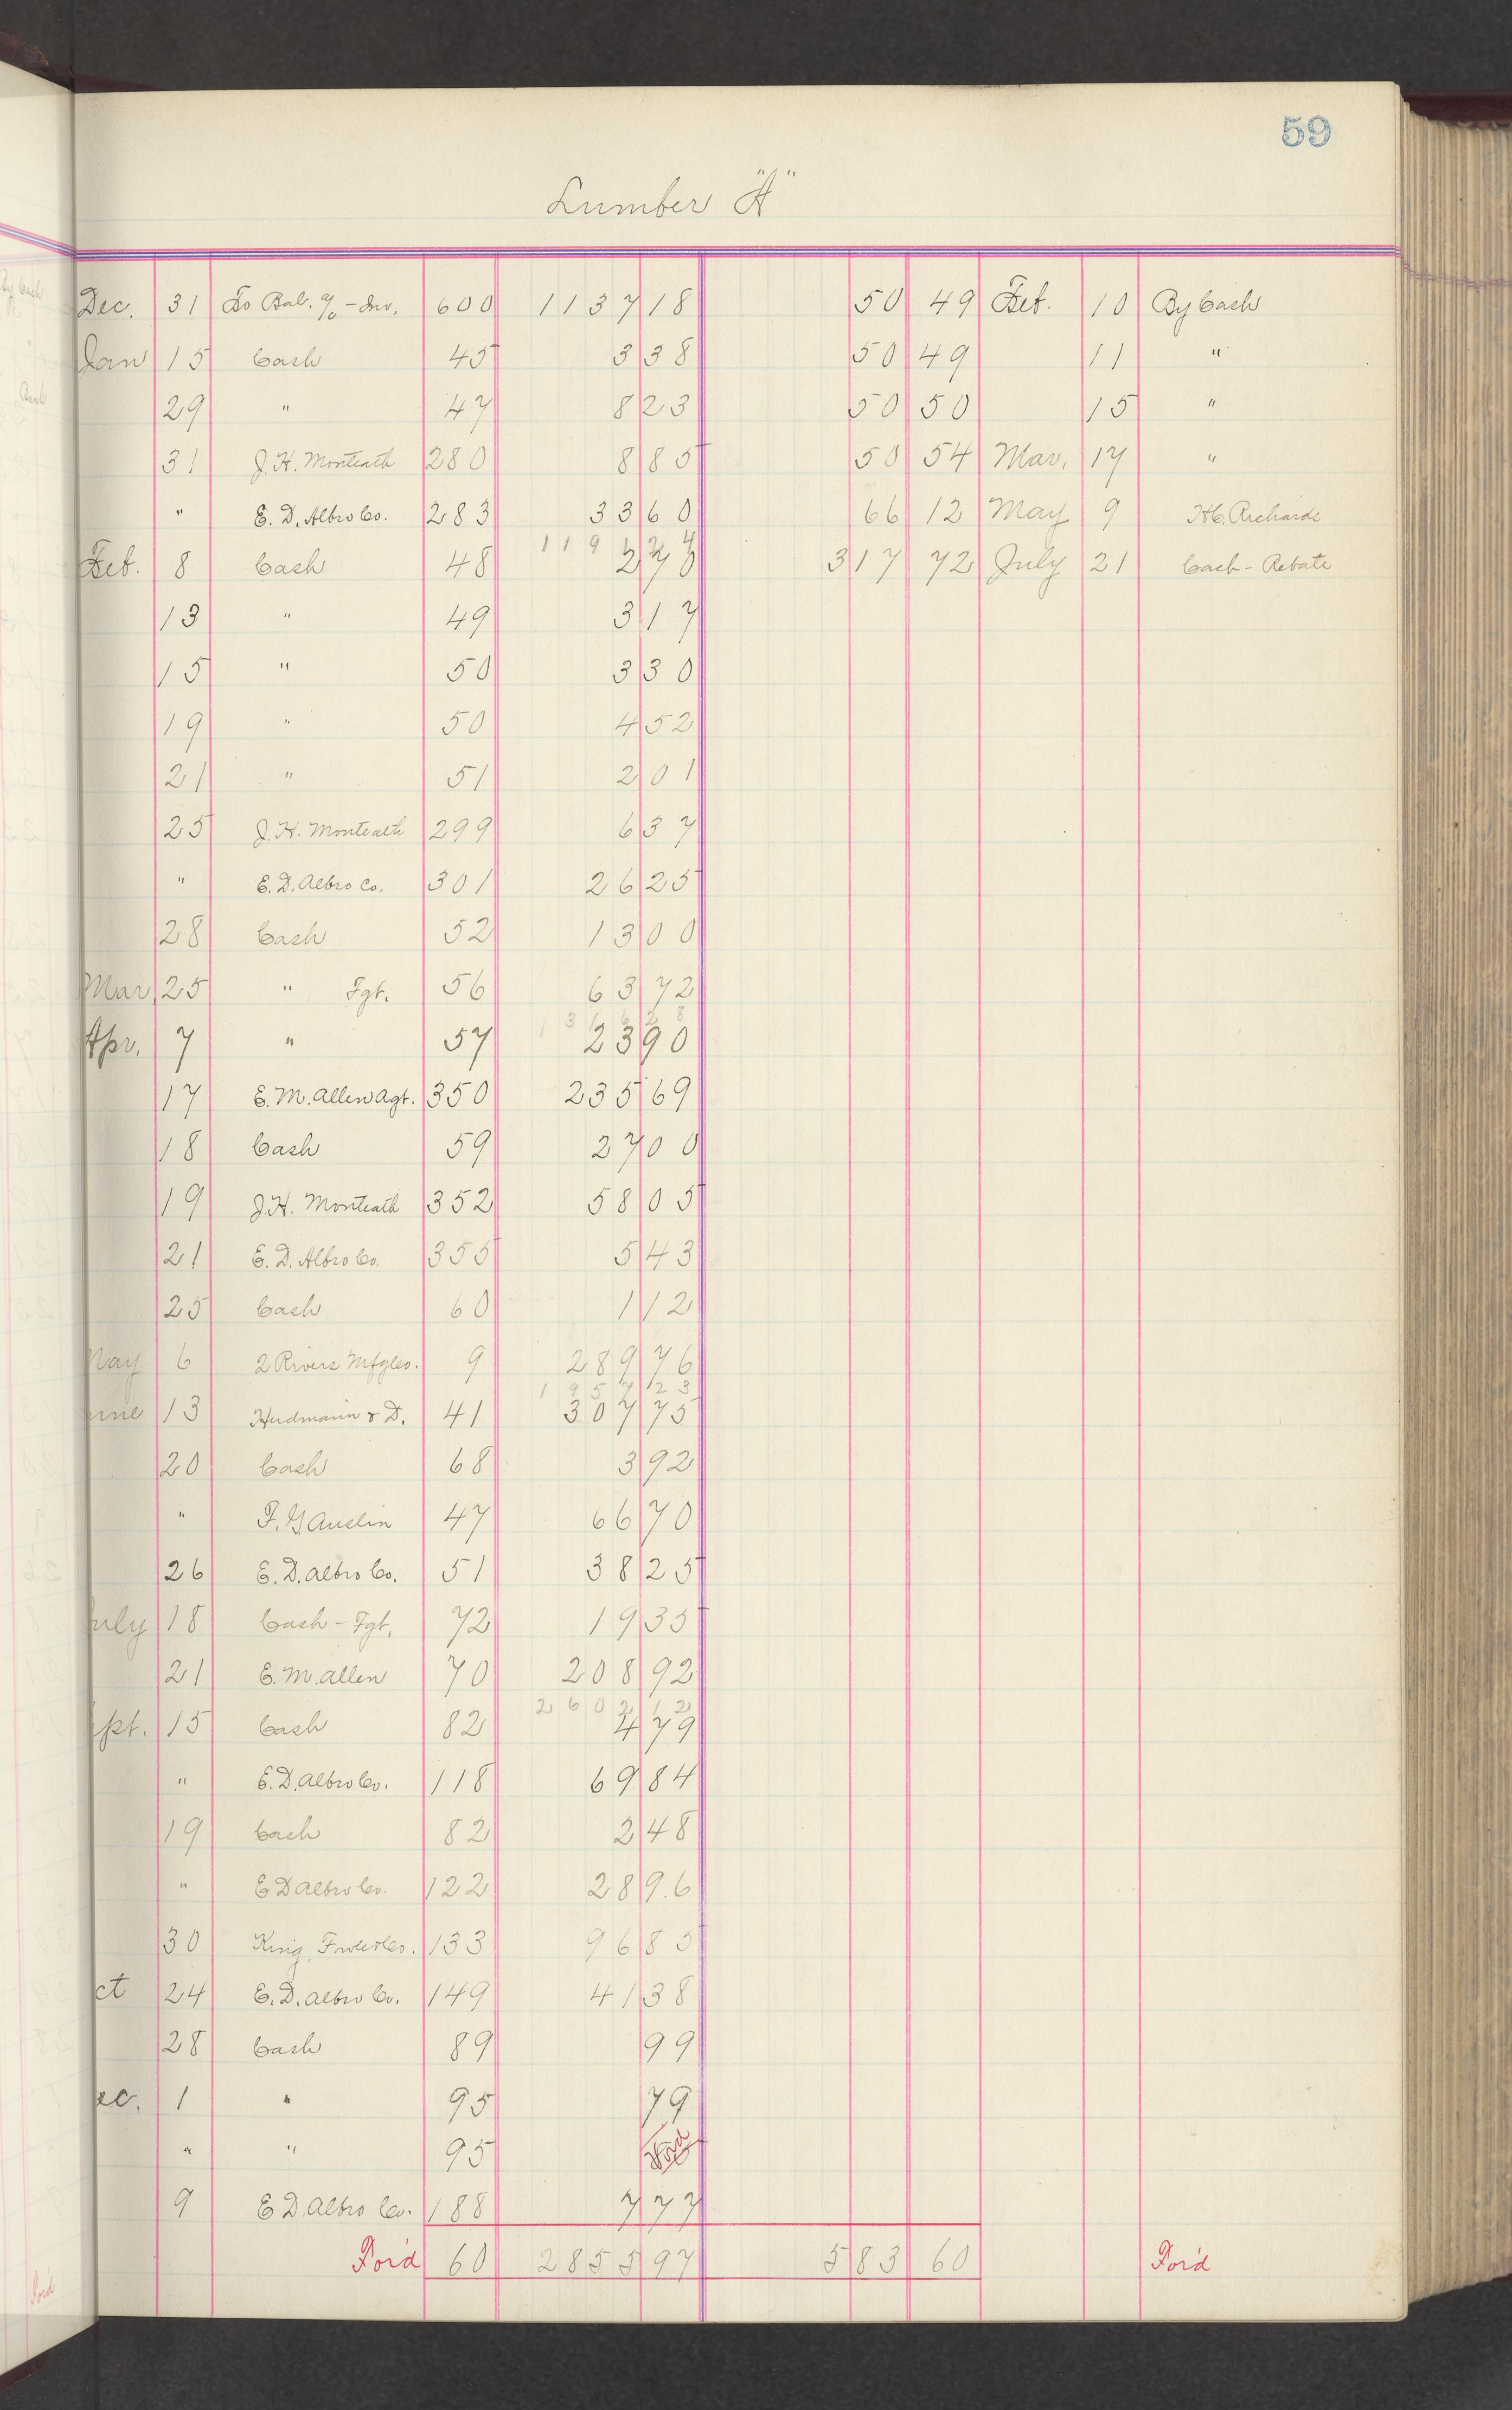 59
Lumber "A"
Dec. 31 To Bal. a/c - Inv. 600 1137 18 50 49 Feb. 10 By Cash
Jan 15 Cash 45 3 38 50 49 11 "
29 " 47 8 23 50 50 15 "
31 J. H. Monteath 280 8 85 50 54 Mar. 17 "
" E. D. Albro Co. 283 33 60 66 12 May 9 H.C. Richards
119
Feb. 8 Cash 48 2 70 317 72 July 21 Cash - Rebate
13 " 49 3 17
15 " 50 3 30
19 " 50 4 52
21 " 51 2 01
25 J. H. Monteath 299 6 37
" E. D. Albro Co. 301 26 25
28 Cash 52 13 00
Mar 25 " Fgt. 56 63 72
Apr. 7 " 57 23 90
17 E. M. Allen Agt. 350 235 69
18 Cash 59 27 00
19 J. H. Monteath 352 58 05
21 E. D. Albro Co. 355 5 43
25 Cash 60 1 12
May 6 2 Rivers Mfg Co. 9 289 76
1957 23
June 13 & D. 41 307 75
20 Cash 68 3 92
" 47 66 70
26 E. D. Albro Co. 51 38 25
July 18 Cash - Fgt. 72 19 35
21 E. M. Allen 70 208 92
2602 12
pt. 15 Cash 82 4 79
" E. D. Albro Co. 118 69 84
19 Cash 82 2 48
" E D Albro Co. 122 28 9.6
30 King 133 96 85
ct 24 E. D. Albro Co. 149 41 38
28 Cash 89 99
ec. 1 " 95 79
" " 95
9 E D. Albro Co. 188 7 77
For'd 60 2855 97 583 60 For'd